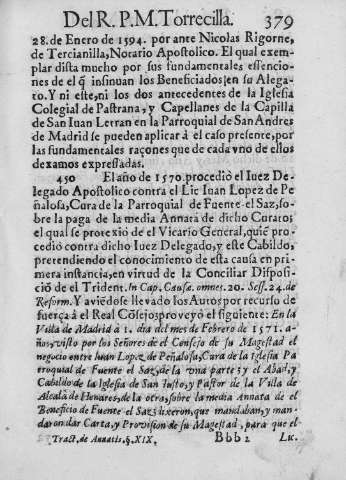 Del R. P. M. Torrecilla. 379
28. de Enero de 1594. por ante Nicolas Rigorne,
de Tercianilla, Notario Apostolico. El qual exem-
plar dista mucho por sus fundamentales essencio-
nes de el q̃ insinuan los Beneficiados en su Alega-
to. Y ni este, ni los dos antecedentes de la Iglesia
Colegial de Pastrana, y Capellanes de la Capilla
de San Iuan Letran en la Parroquial de San Andres
de Madrid se pueden aplicar à el caso presente, por
las fundamentales raçones que de cada vno de ellos
dexamos expressadas.
450 El año de 1570. procediò el Iuez De-
legado Apostolico contra el Lic Iuan Lopez de Pe
ñalosa, Cura de la Parroquial de Fuente el Saz, so-
bre la paga de la media Annata de dicho Curato;
el qual se protexio de el Vicario General, quiē pro
cediò contra dicho Iuez Delegado, y este Cabildo,
pretendiendo el conocimiento de esta causa en pri-
mera instancia, en virtud de la Conciliar Disposi-
ciò de el Trident. In Cap. Causæ omnes. 20. Sess. 24. de
Reform. Y aviēdose llevado los Autos por recurso de
fuerça à el Real Cōsejo, proveyò el siguiente: En la
Villa de Madrid à 1. dia del mes de Febrero de 1571. a-
ños, visto por los Señores de el Consejo de su Magestad el
negocio entre Iuan Lopez de Peñalosa, Cura de la Iglesia Pa
rroquial de Fuente el Saz, de la vna parte; y el Abad, y
Cabildo de la Iglesia de San Iusto, y Pastor de la Villa de
Alcalà de Henares, de la otra, sobre la media Annata de el
Beneficio de Fuente el Saz: dixeron, que mandaban, y man-
daron dar Carta, y Provision de su Magestad, para que el
Tract. de Annatis, §. XIX. Bbb 2 Lic.